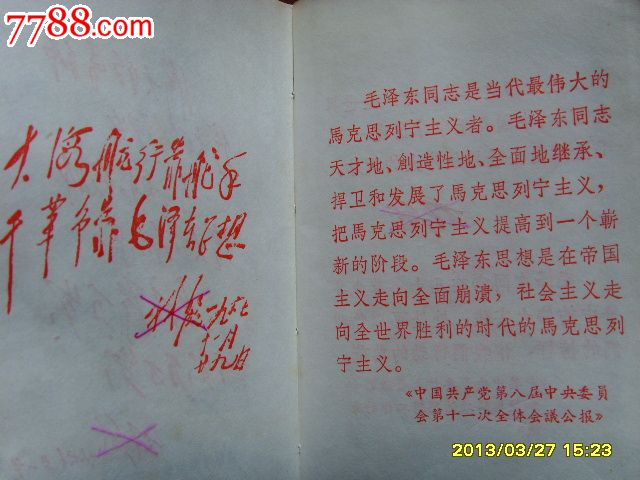 7788.com
大海航行靠舵手
干革命靠毛泽东思想
一九六七
十一月
廿九日
毛泽东同志是当代最伟大的
馬克思列宁主义者。毛泽东同志
天才地、創造性地、全面地继承、
捍卫和发展了馬克思列宁主义，
把馬克思列宁主义提高到一个嶄
新的阶段。毛泽东思想是在帝国
主义走向全面崩潰，社会主义走
向全世界胜利的时代的馬克思列
宁主义。
《中国共产党第八届中央委員
会第十一次全体会議公报》
2013/03/27 15:23